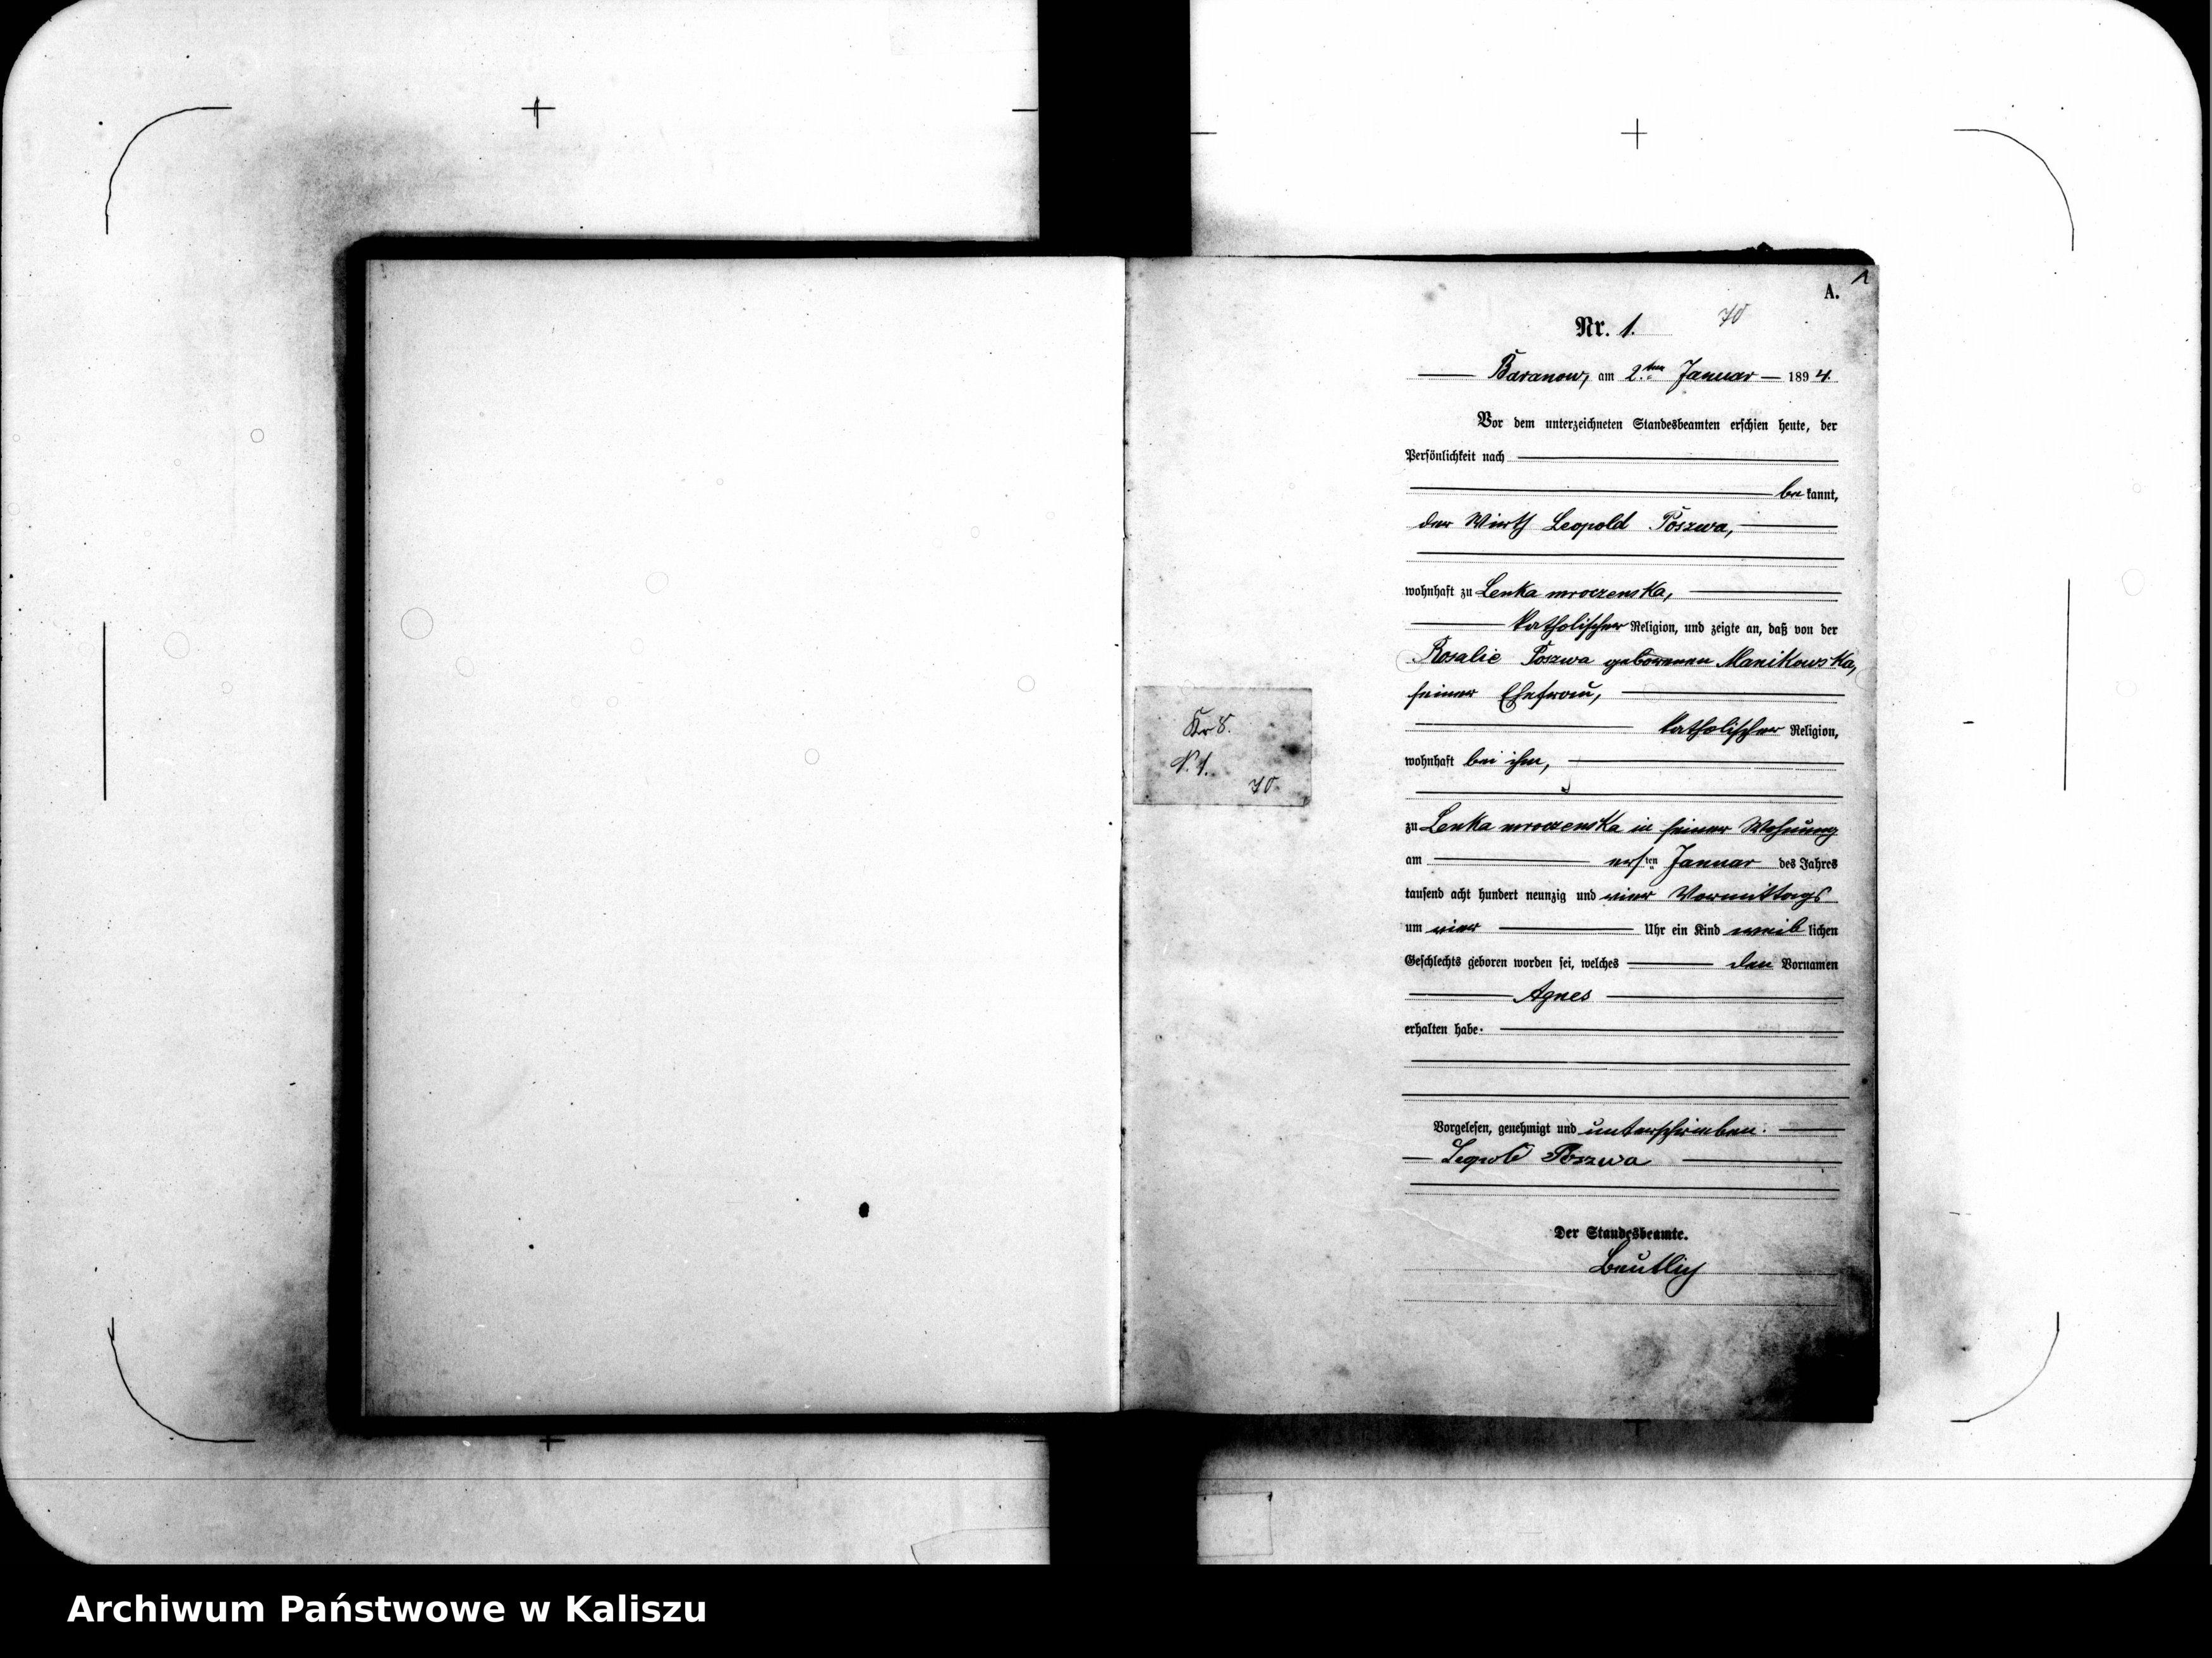 1
A.
Nr. 1.
70
Baranow, am 2.ten Januar 1894.
Vor dem unterzeichneten Standesbeamten erschien heute, der
Persönlichkeit nach
bekannt,
der Wirth Leopold Poszwa,
wohnhaft zu Lenka mroczenska,
katholischer Religion, und zeigte an, daß von der
Rosalie Poszwa geborenen Manikowska,
seiner Ehefrau,
katholischer Religion,
wohnhaft bei ihm,
zu Lenka mroczenska in seiner Wohnung
am ersten Januar des Jahres
tausend acht hundert neunzig und vier Vormittags
um vier Uhr ein Kind weiblichen
Geschlechts geboren worden sei, welches den Vornamen
Agnes
erhalten habe.
Vorgelesen, genehmigt und unterschrieben.
Leopold Poszwa
Der Standesbeamte.
Kr 8.
N. 1.
70.
Archiwum Państwowe w Kaliszu